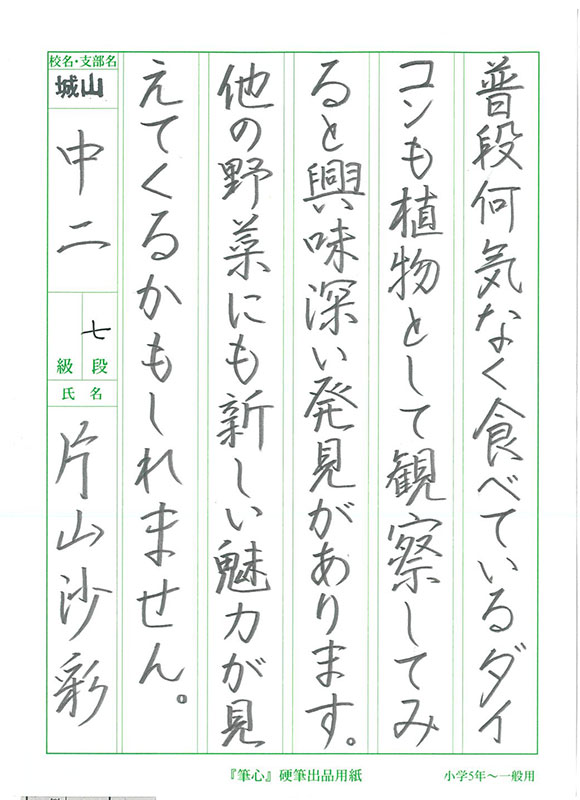 普段何気なく食べているダイ
コンも植物として観察してみ
ると興味深い発見があります。
他の野菜にも新しい魅力が見
えてくるかもしれません。
校名・支部名
城山
中二
七
級 段
氏 名
片山沙彩
『筆心』硬筆出品用紙
小学5年～一般用